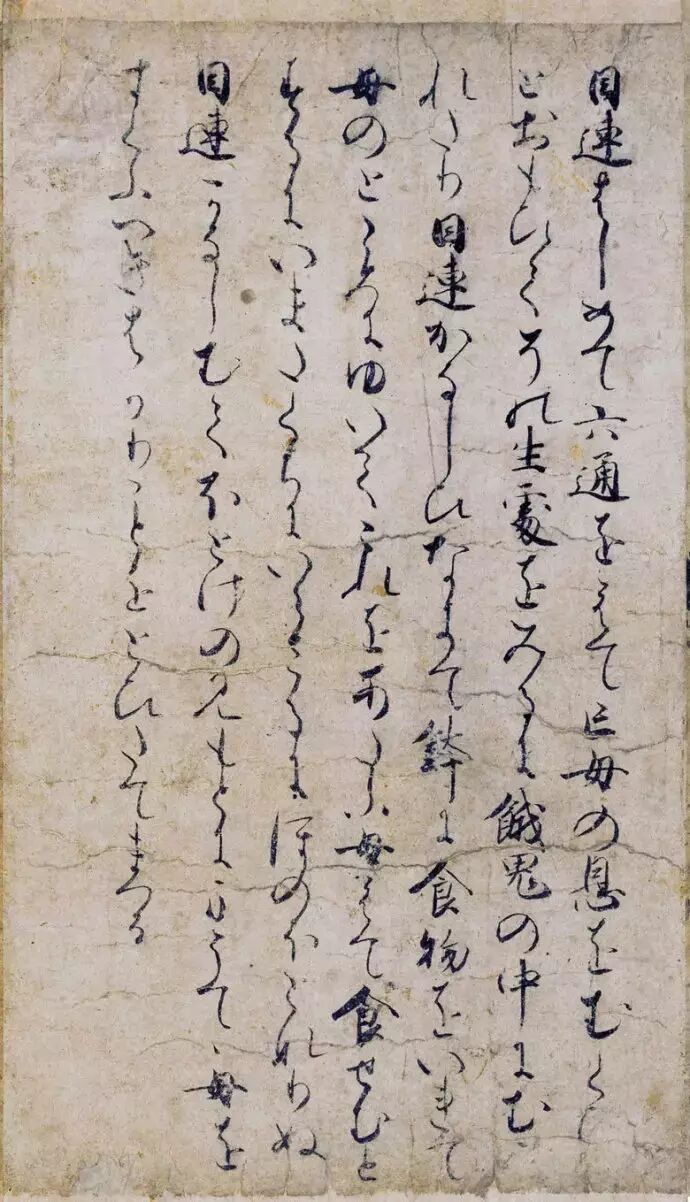 目連はしめて六通をえて亡母の恩をむく
とおもひてその生處をみるに餓鬼の中にむ
れたり目連かなしひなきて鉢に食物をいれて
母のところにゆいてこれをあたふ母えて食せむと
するにいまたくちにいらさるにほのほとなりぬ
目連かなしむてほとけのみもとにまうて母を
すくふへきはかりことをとひたてまつる